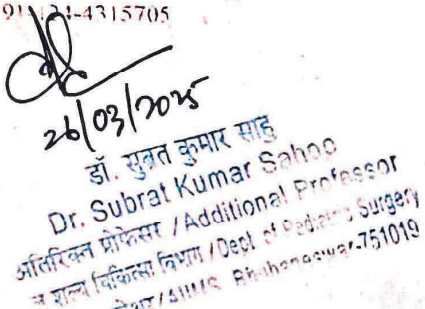 4315705
26/03/2025
डॉ. सुब्रत कुमार साहु
Dr. Subrat Kumar Sahoo
अतिरिक्त प्रोफेसर / Additional Professor
शल्य चिकित्सा विभाग / Dept of Pediatric Surgery
/ AIIMS Bhubaneswar-751019